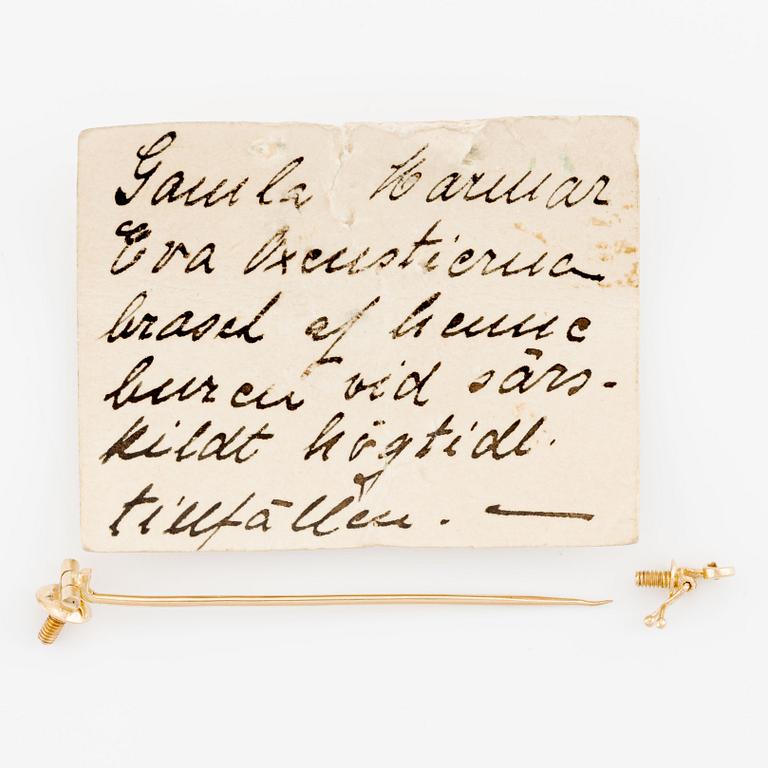 Gamla Mormor
Eva Oxenstierna
brasch af henne
buren vid särs-
kildt högtidl.
tillfällen. —